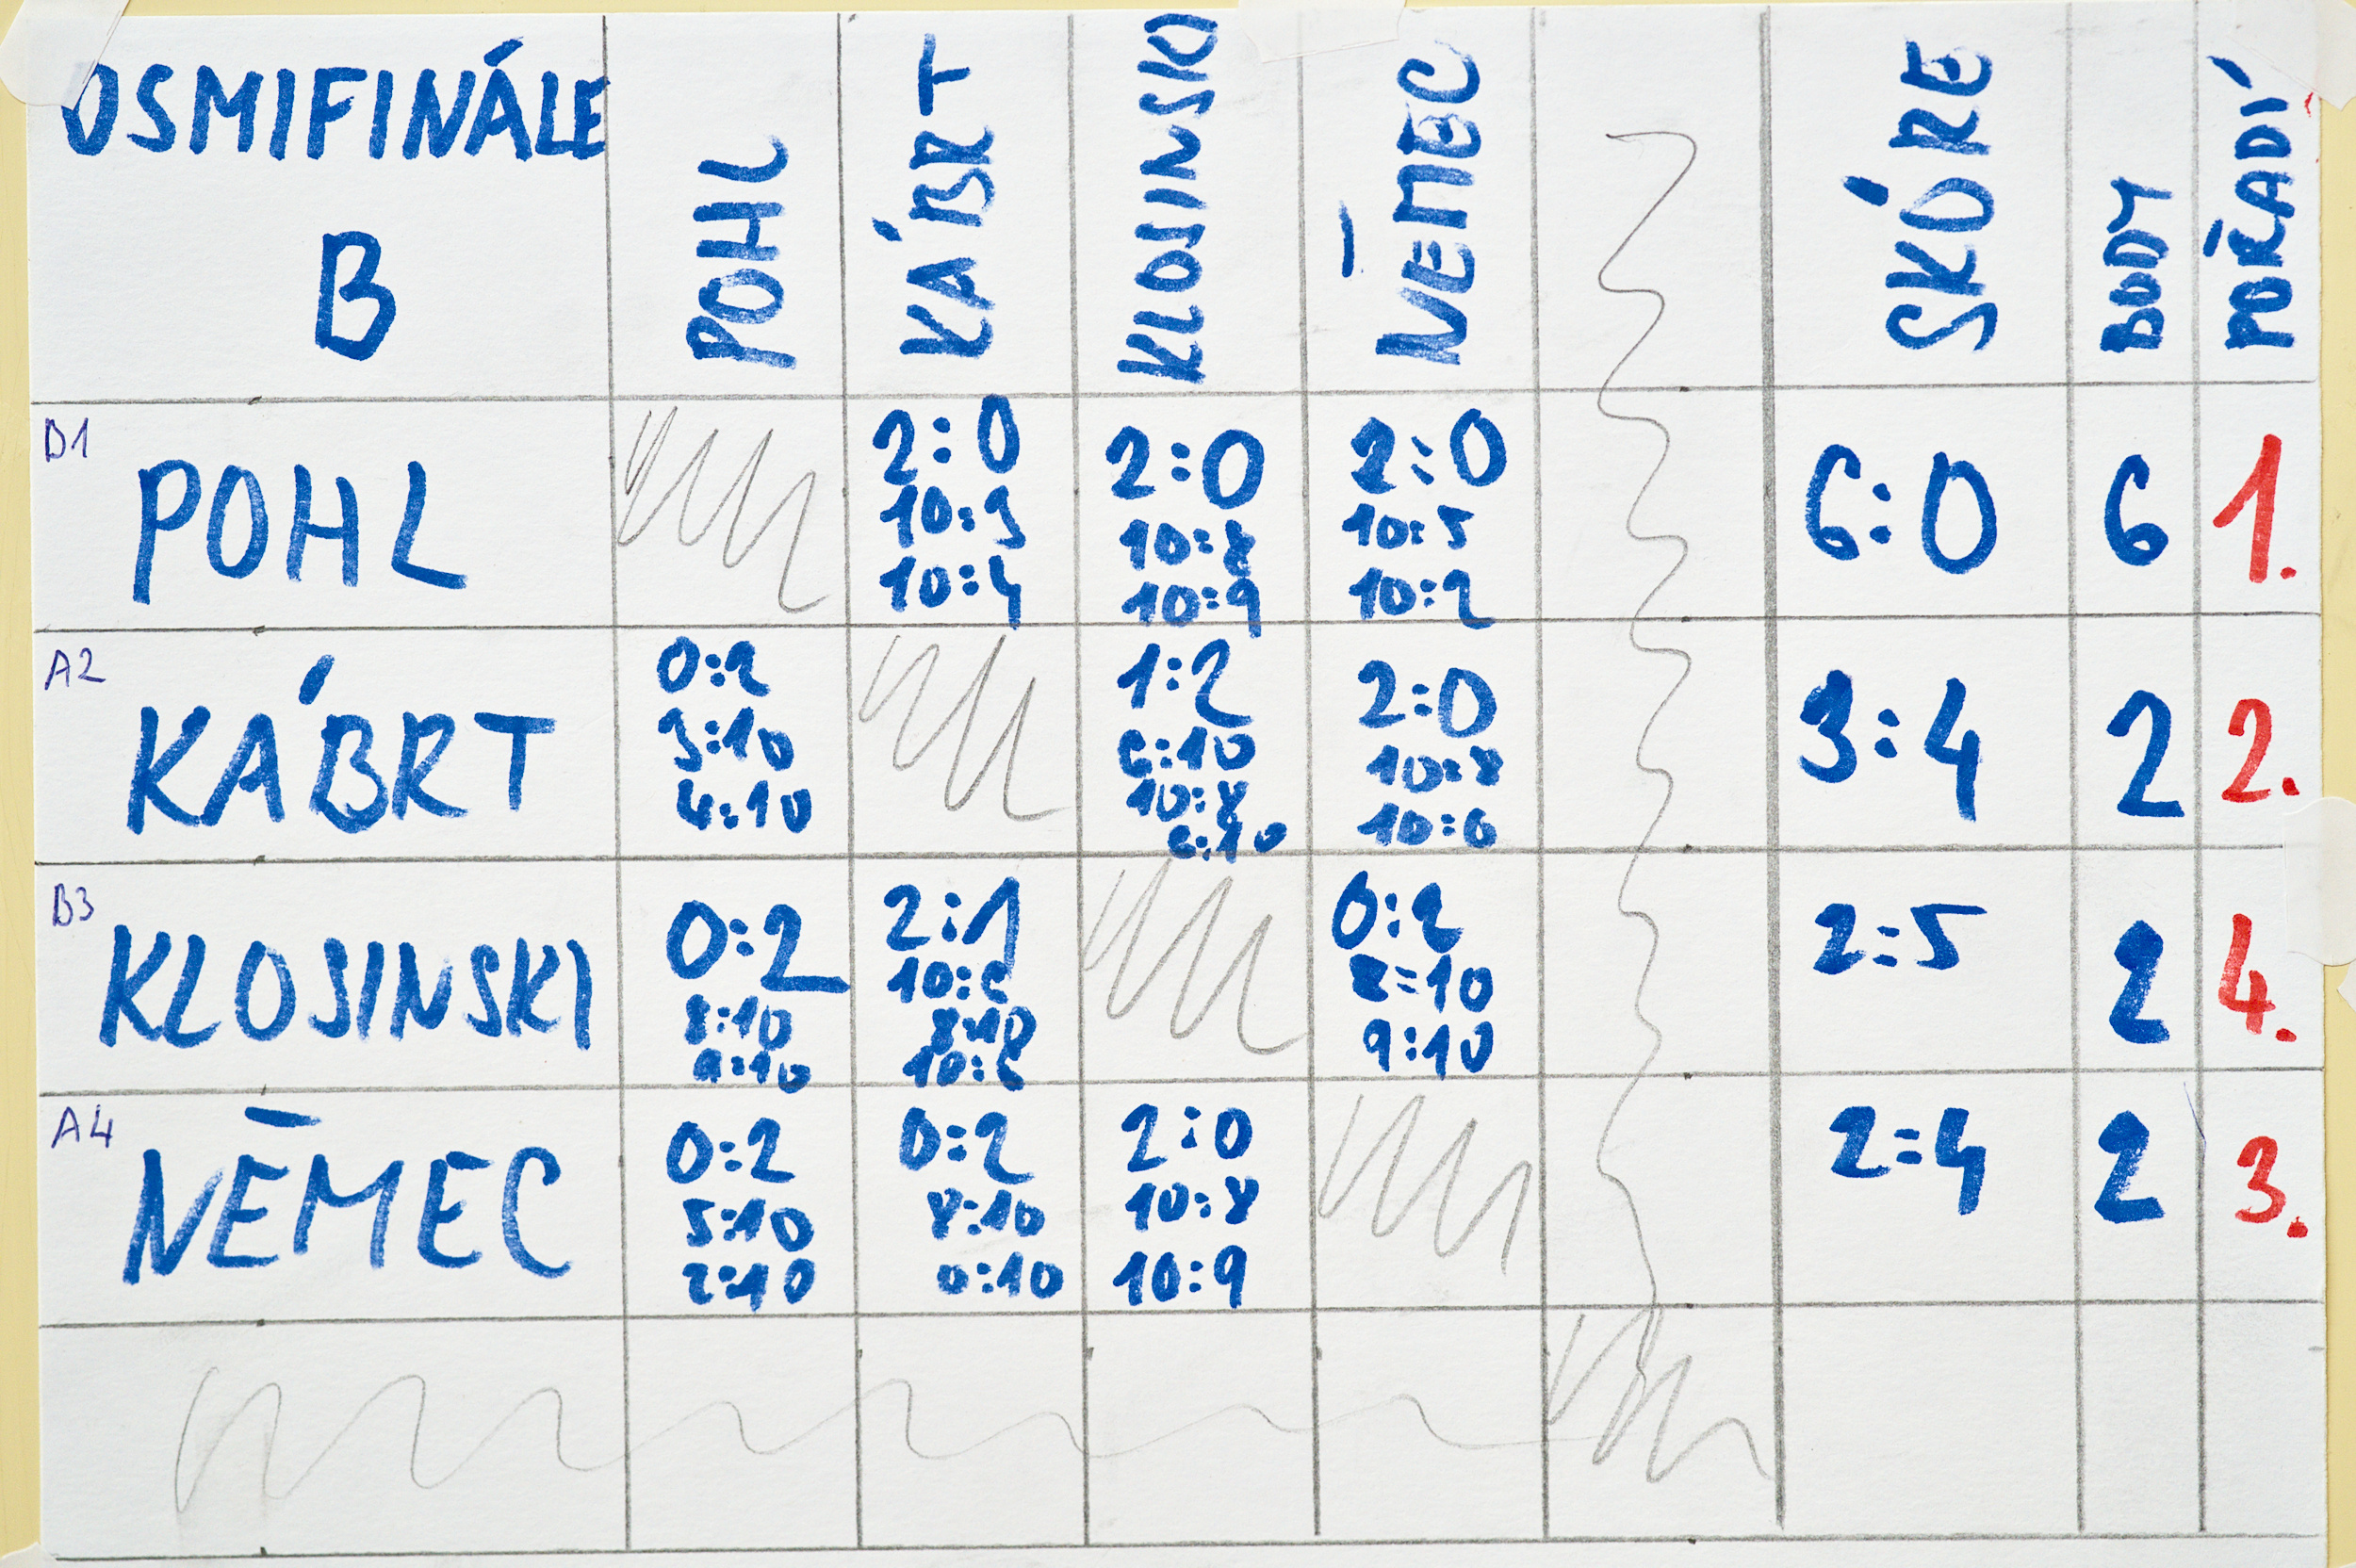 OSMIFINÁLE
B
POHL
KÁBRT
KLOSINSKI
NĚMEC
SKÓRE
BODY
POŘADÍ
B1
POHL
2:0
10:3
10:4
2:0
10:8
10:9
2:0
10:5
10:2
6:0
6
1.
A2
KÁBRT
0:2
3:10
4:10
1:2
6:10
10:8
6:10
2:0
10:8
10:0
3:4
2
2.
B3
KLOSINSKI
0:2
8:10
9:10
2:1
10:6
8:10
10:6
0:2
8:10
9:10
2:5
2
4.
A4
NĚMEC
0:2
5:10
2:10
0:2
8:10
0:10
2:0
10:8
10:9
2:4
2
3.